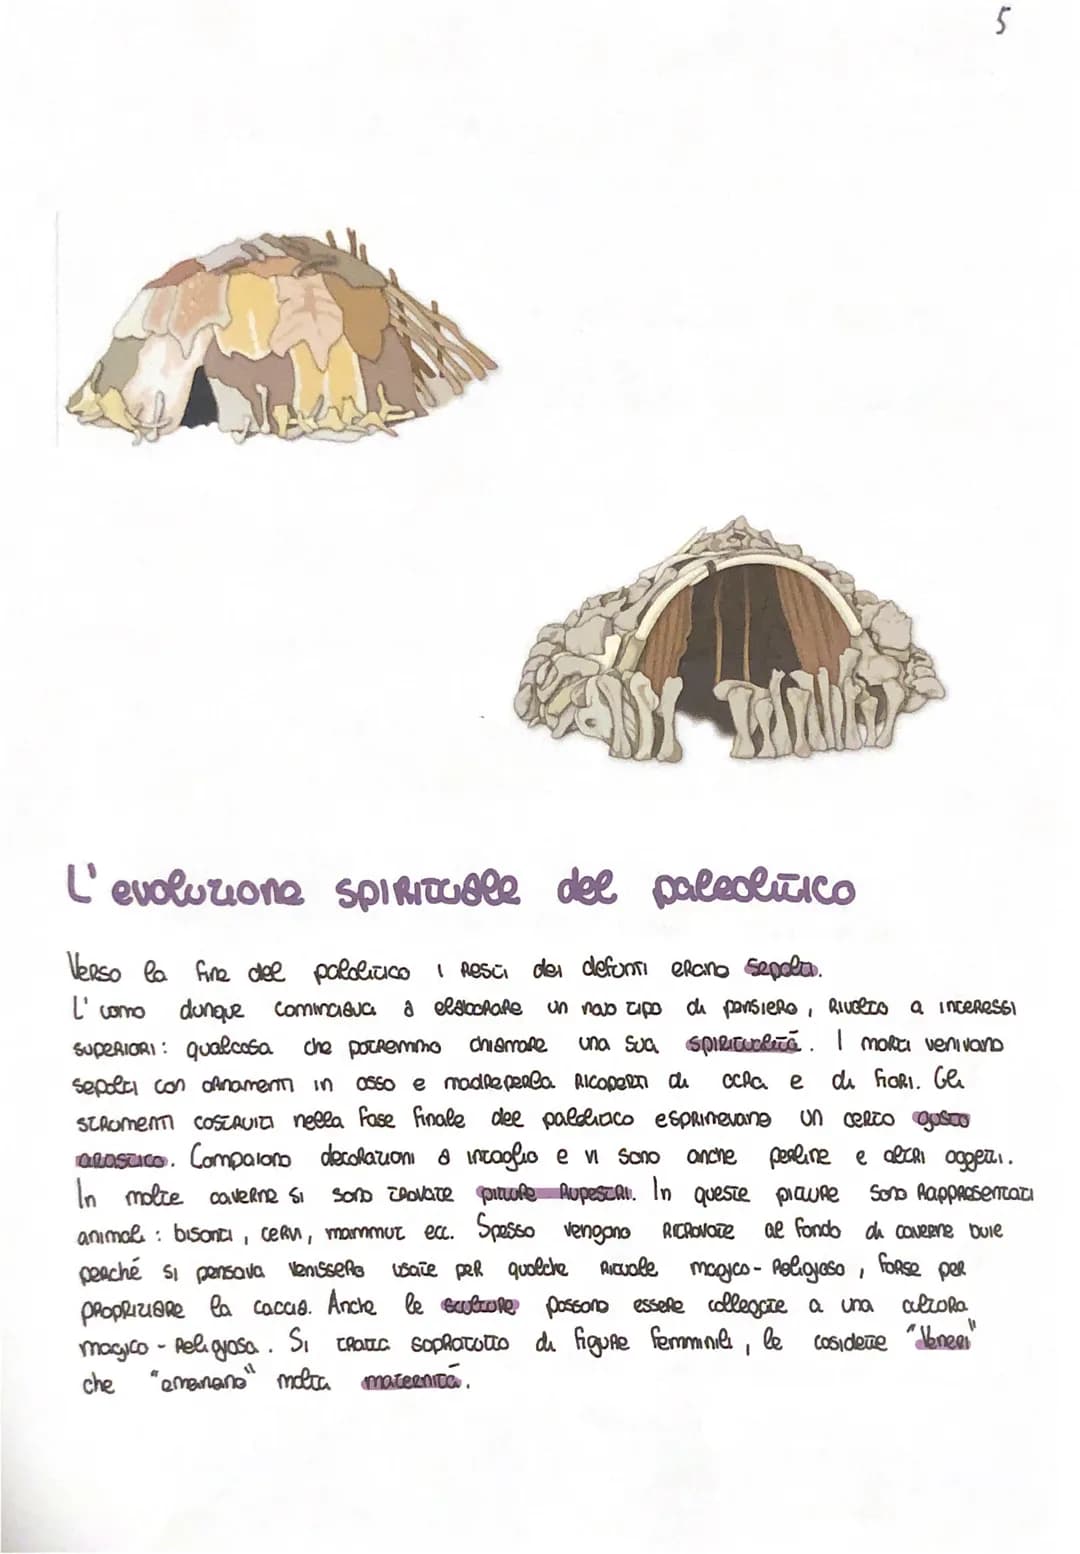 5
L'evoluzione spirituale del paleolitico
Verso la fine del paleolitico i resti dei defunti erano sepolti.
L'uomo dunque cominciava a elaborare un nuovo tipo di pensiero, rivolto a interessi
superiori: qualcosa che potremmo chiamare una sua spiritualità. I morti venivano
sepolti con ornamenti in osso e madreperla ricoperti di ocra e di fiori. Gli
strumenti costruiti nella fase finale del paleolitico esprimevano un certo gusto
artistico. Compaiono decorazioni a intaglio e vi sono anche perline e altri oggetti.
In molte caverne si sono trovate pitture rupestri. In queste pitture sono rappresentati
animali: bisonti, cervi, mammut ecc. Spesso vengono ritrovate al fondo di caverne buie
perché si pensava venissero usate per qualche rituale magico-religioso, forse per
propiziare la caccia. Anche le sculture possono essere collegate a una altora
magico-religiosa. Si tratta sopratutto di figure femminili, le cosidette "Veneri"
che "emanano" molta maternità.